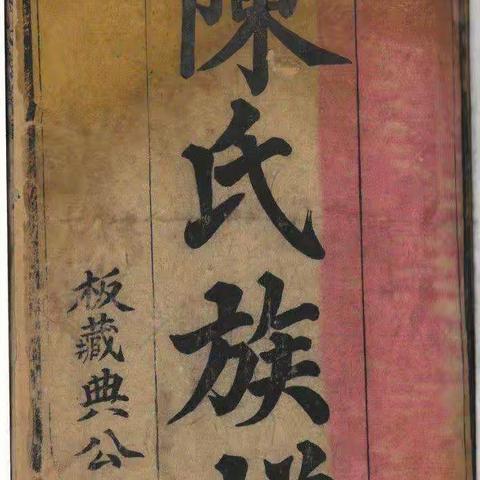 陳氏族
板藏典公